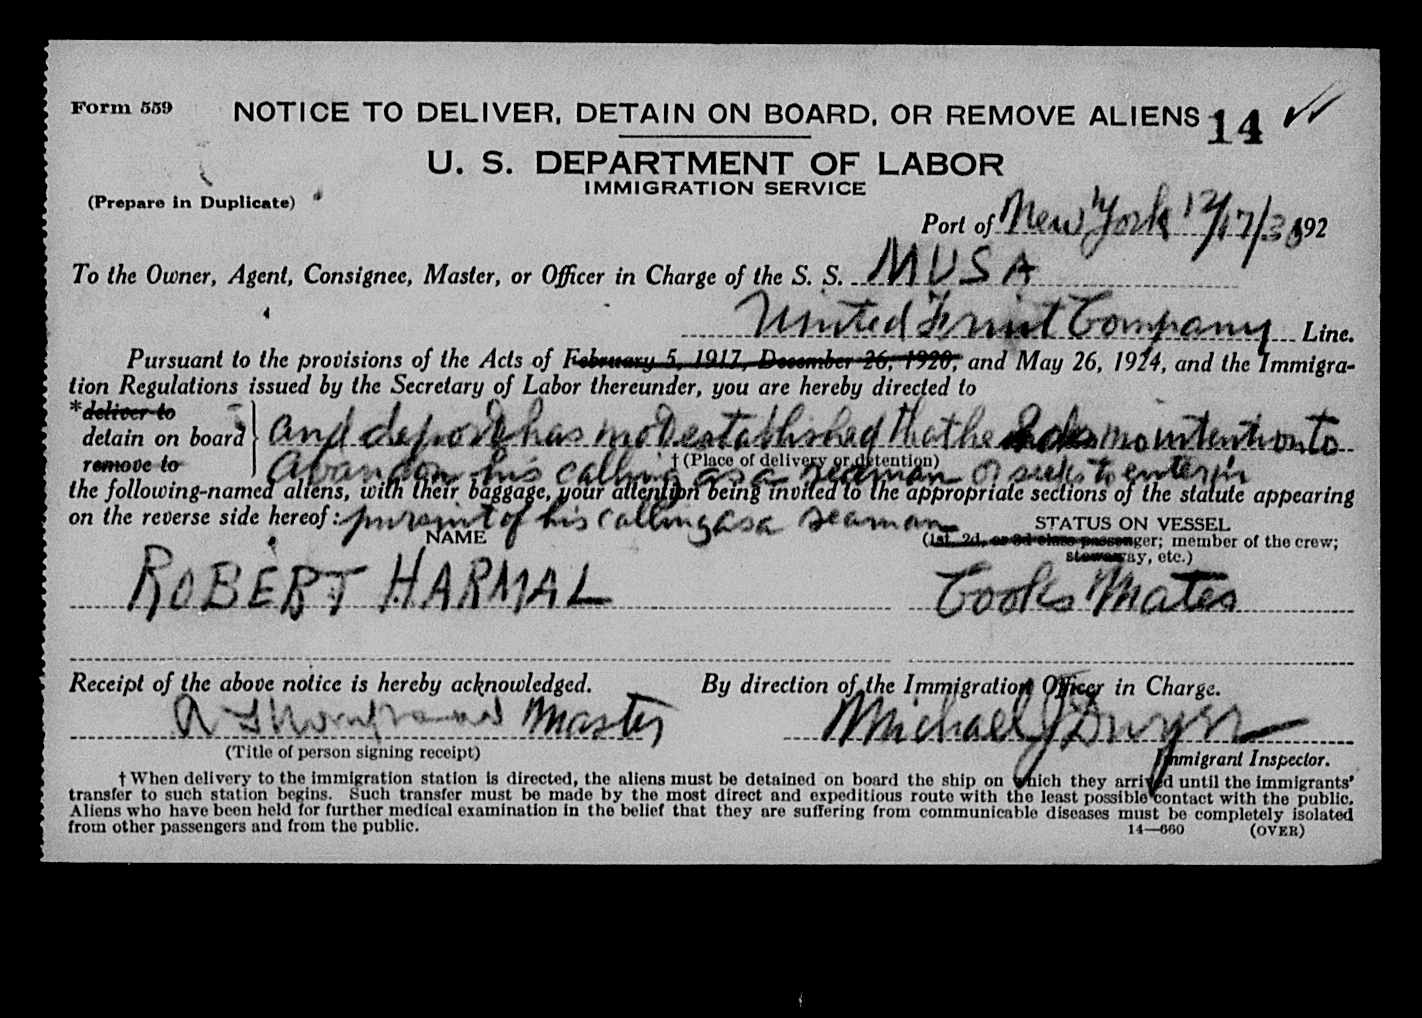 Form 559 NOTICE TO DELIVER, DETAIN ON BOARD, OR REMOVE ALIENS 14
U. S. DEPARTMENT OF LABOR
IMMIGRATION SERVICE
(Prepare in Duplicate)
Port of New York 12/17/30 192
To the Owner, Agent, Consignee, Master, or Officer in Charge of the S. S. MUSA
United Fruit Company Line.
Pursuant to the provisions of the Acts of February 5, 1917, December 26, 1920, and May 26, 1924, and the Immigra-
tion Regulations issued by the Secretary of Labor thereunder, you are hereby directed to
*deliver to
detain on board and deport has not established that he has no intention to
remove to abandon his calling as a seaman or seeks to enter in
†(Place of delivery or detention)
the following-named aliens, with their baggage, your attention being invited to the appropriate sections of the statute appearing
on the reverse side hereof: pursuit of his calling as a seaman
NAME STATUS ON VESSEL
(1st, 2d, or 3d class passenger; member of the crew;
stowaway, etc.)
ROBERT HARMAL Cooks Mates
Receipt of the above notice is hereby acknowledged. By direction of the Immigration Officer in Charge.
A Thompson Master Michael J Dwyer
(Title of person signing receipt) Immigrant Inspector.
†When delivery to the immigration station is directed, the aliens must be detained on board the ship on which they arrived until the immigrants'
transfer to such station begins. Such transfer must be made by the most direct and expeditious route with the least possible contact with the public.
Aliens who have been held for further medical examination in the belief that they are suffering from communicable diseases must be completely isolated
from other passengers and from the public. 14—660 (OVER)